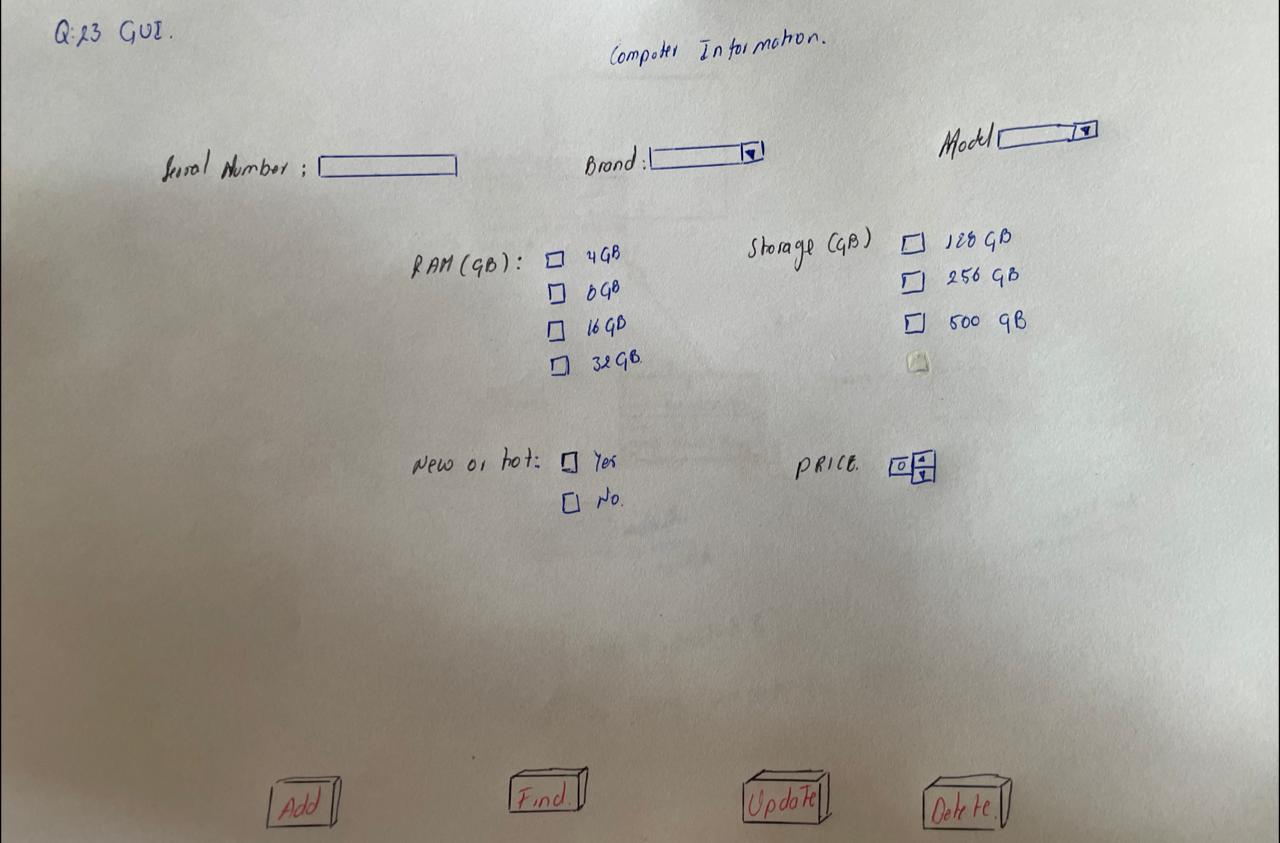 Q:23 GUI.
Computer Information.
Serial Number :
Brand :
Model
RAM (GB) :
4 GB
8 GB
16 GB
32 GB.
Storage (GB)
128 GB
256 GB
500 GB
New or not:
Yes
No.
PRICE.
0
Add
Find.
Update
Delete.